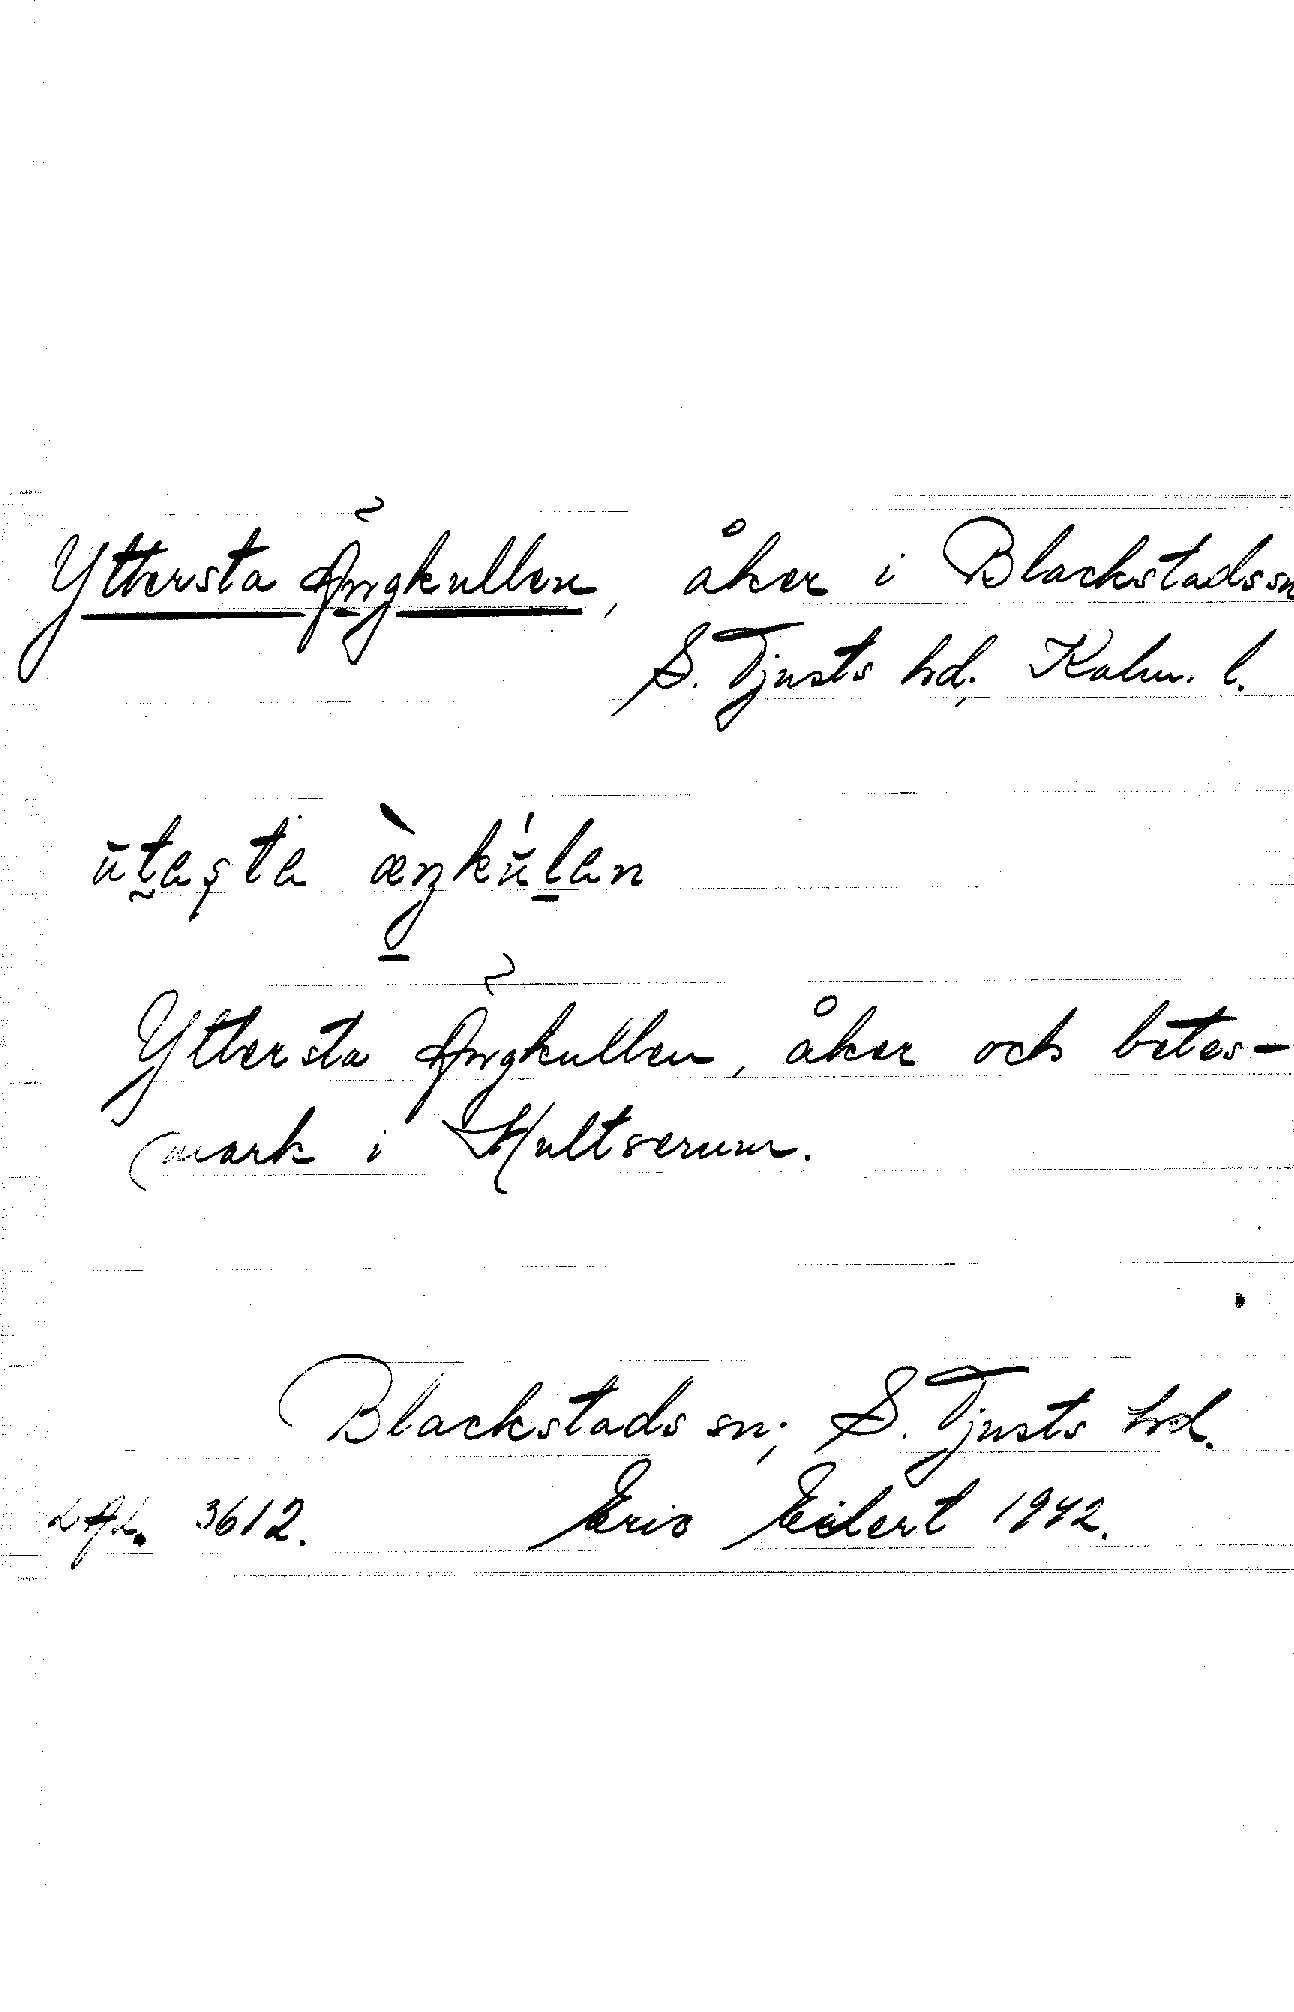 Yttersta Ängkullen, åker i Blackstads sn
S. Tjusts hd. Kalm. l.
ŭtasta ær̀kŭ́lan
Yttersta Ängkullen, åker och betes-
mark i Hultserum.
Blackstads sn; S. Tjusts hd.
3612. Eric Eilert 1942.